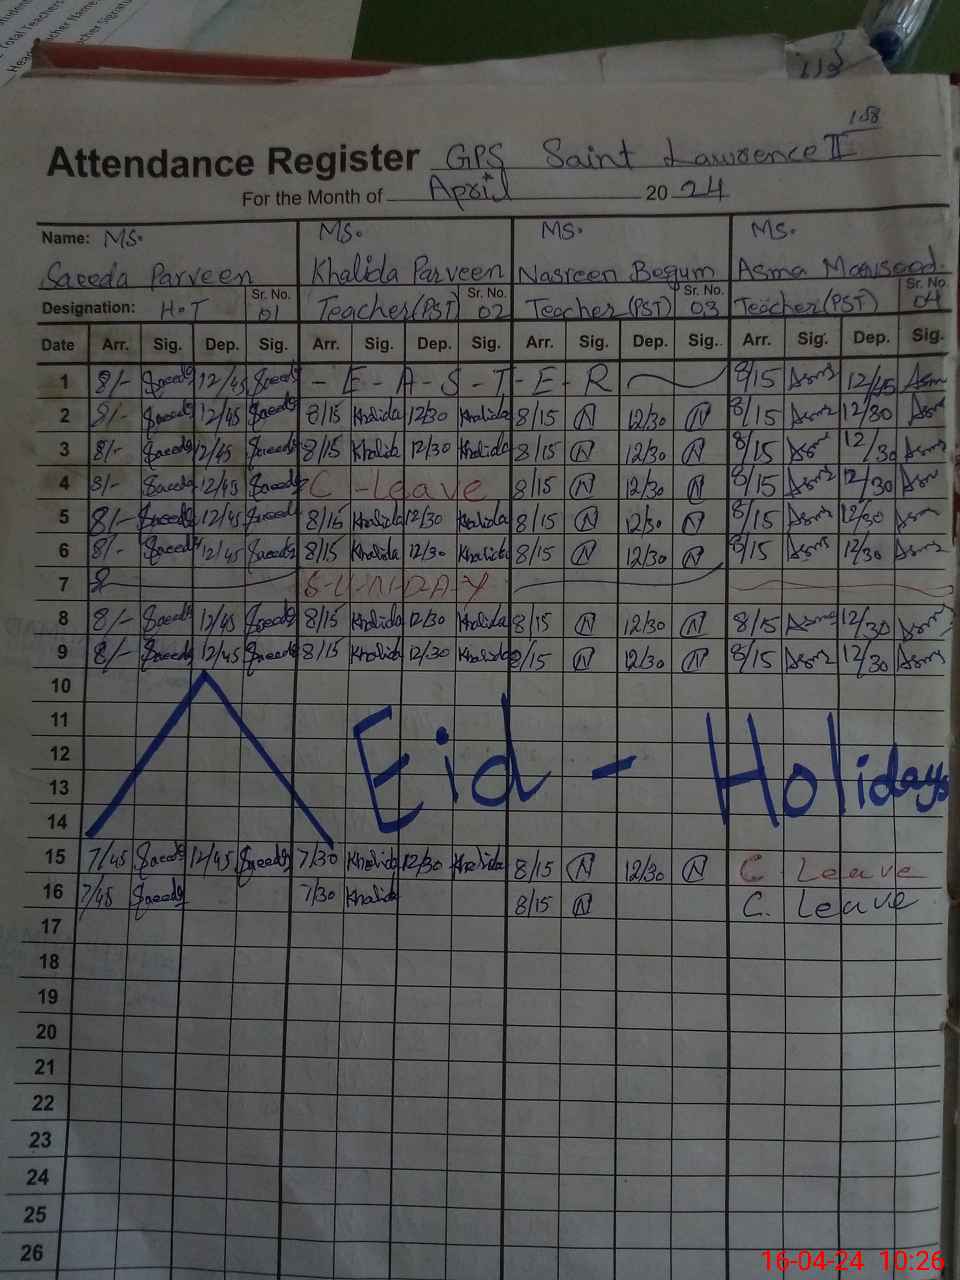 113
158
Attendance Register GPS Saint Lawrence II
For the Month of April 20 24
Name: Ms. Ms. Ms. Ms.
Saeeda Parveen Khalida Parveen Nasreen Begum Asma Maqsood.
Designation: H.T Sr. No. 01 Teacher(PST) Sr. No. 02 Teacher (PST) Sr. No. 03 Teacher (PST) Sr. No. 04
Date Arr. Sig. Dep. Sig. Arr. Sig. Dep. Sig. Arr. Sig. Dep. Sig. Arr. Sig. Dep. Sig.
1 8/- Saeeda 12/45 Saeeda - E - A - S - T - E - R 8/15 Asma 12/45 Asma
2 8/- Saeeda 12/45 Saeeda 8/15 Khalida 12/30 Khalida 8/15 N 12/30 N 8/15 Asma 12/30 Asma
3 8/- Saeeda 12/45 Saeeda 8/15 Khalida 12/30 Khalida 8/15 N 12/30 N 8/15 Asma 12/30 Asma
4 8/- Saeeda 12/45 Saeeda C - Leave 8/15 N 12/30 N 8/15 Asma 12/30 Asma
5 8/- Saeeda 12/45 Saeeda 8/15 Khalida 12/30 Khalida 8/15 N 12/30 N 8/15 Asma 12/30 Asma
6 8/- Saeeda 12/45 Saeeda 8/15 Khalida 12/30 Khalida 8/15 N 12/30 N 8/15 Asma 12/30 Asma
7 S-U-N-D-A-Y
8 8/- Saeeda 12/45 Saeeda 8/15 Khalida 12/30 Khalida 8/15 N 12/30 N 8/15 Asma 12/30 Asma
9 8/- Saeeda 12/45 Saeeda 8/15 Khalida 12/30 Khalida 8/15 N 12/30 N 8/15 Asma 12/30 Asma
10
11
12 Eid - Holidays
13
14
15 7/45 Saeeda 12/45 Saeeda 7/30 Khalida 12/30 Khalida 8/15 N 12/30 N C Leave
16 7/45 Saeeda 7/30 Khalida 8/15 N C. Leave
17
18
19
20
21
22
23
24
25
26
16-04-24 10:26